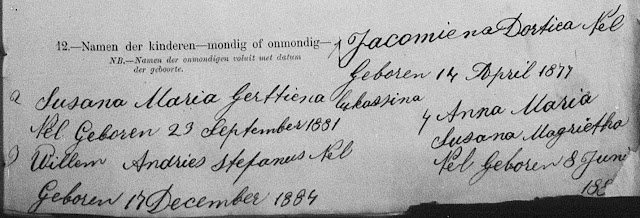 12.—Namen der kinderen—mondig of onmondig—
NB.—Namen der onmondigen voluit met datum
der geboorte.
1 Jacomiena Dortica Nel
Geboren 14 April 1877
2 Susana Maria Gerttiena Lukassina
Nel Geboren 23 September 1881
3 Willem Andries Stefanus Nel
Geboren 17 December 1884
4 Anna Maria
Susana Magrietha
Nel Geboren 8 Juni